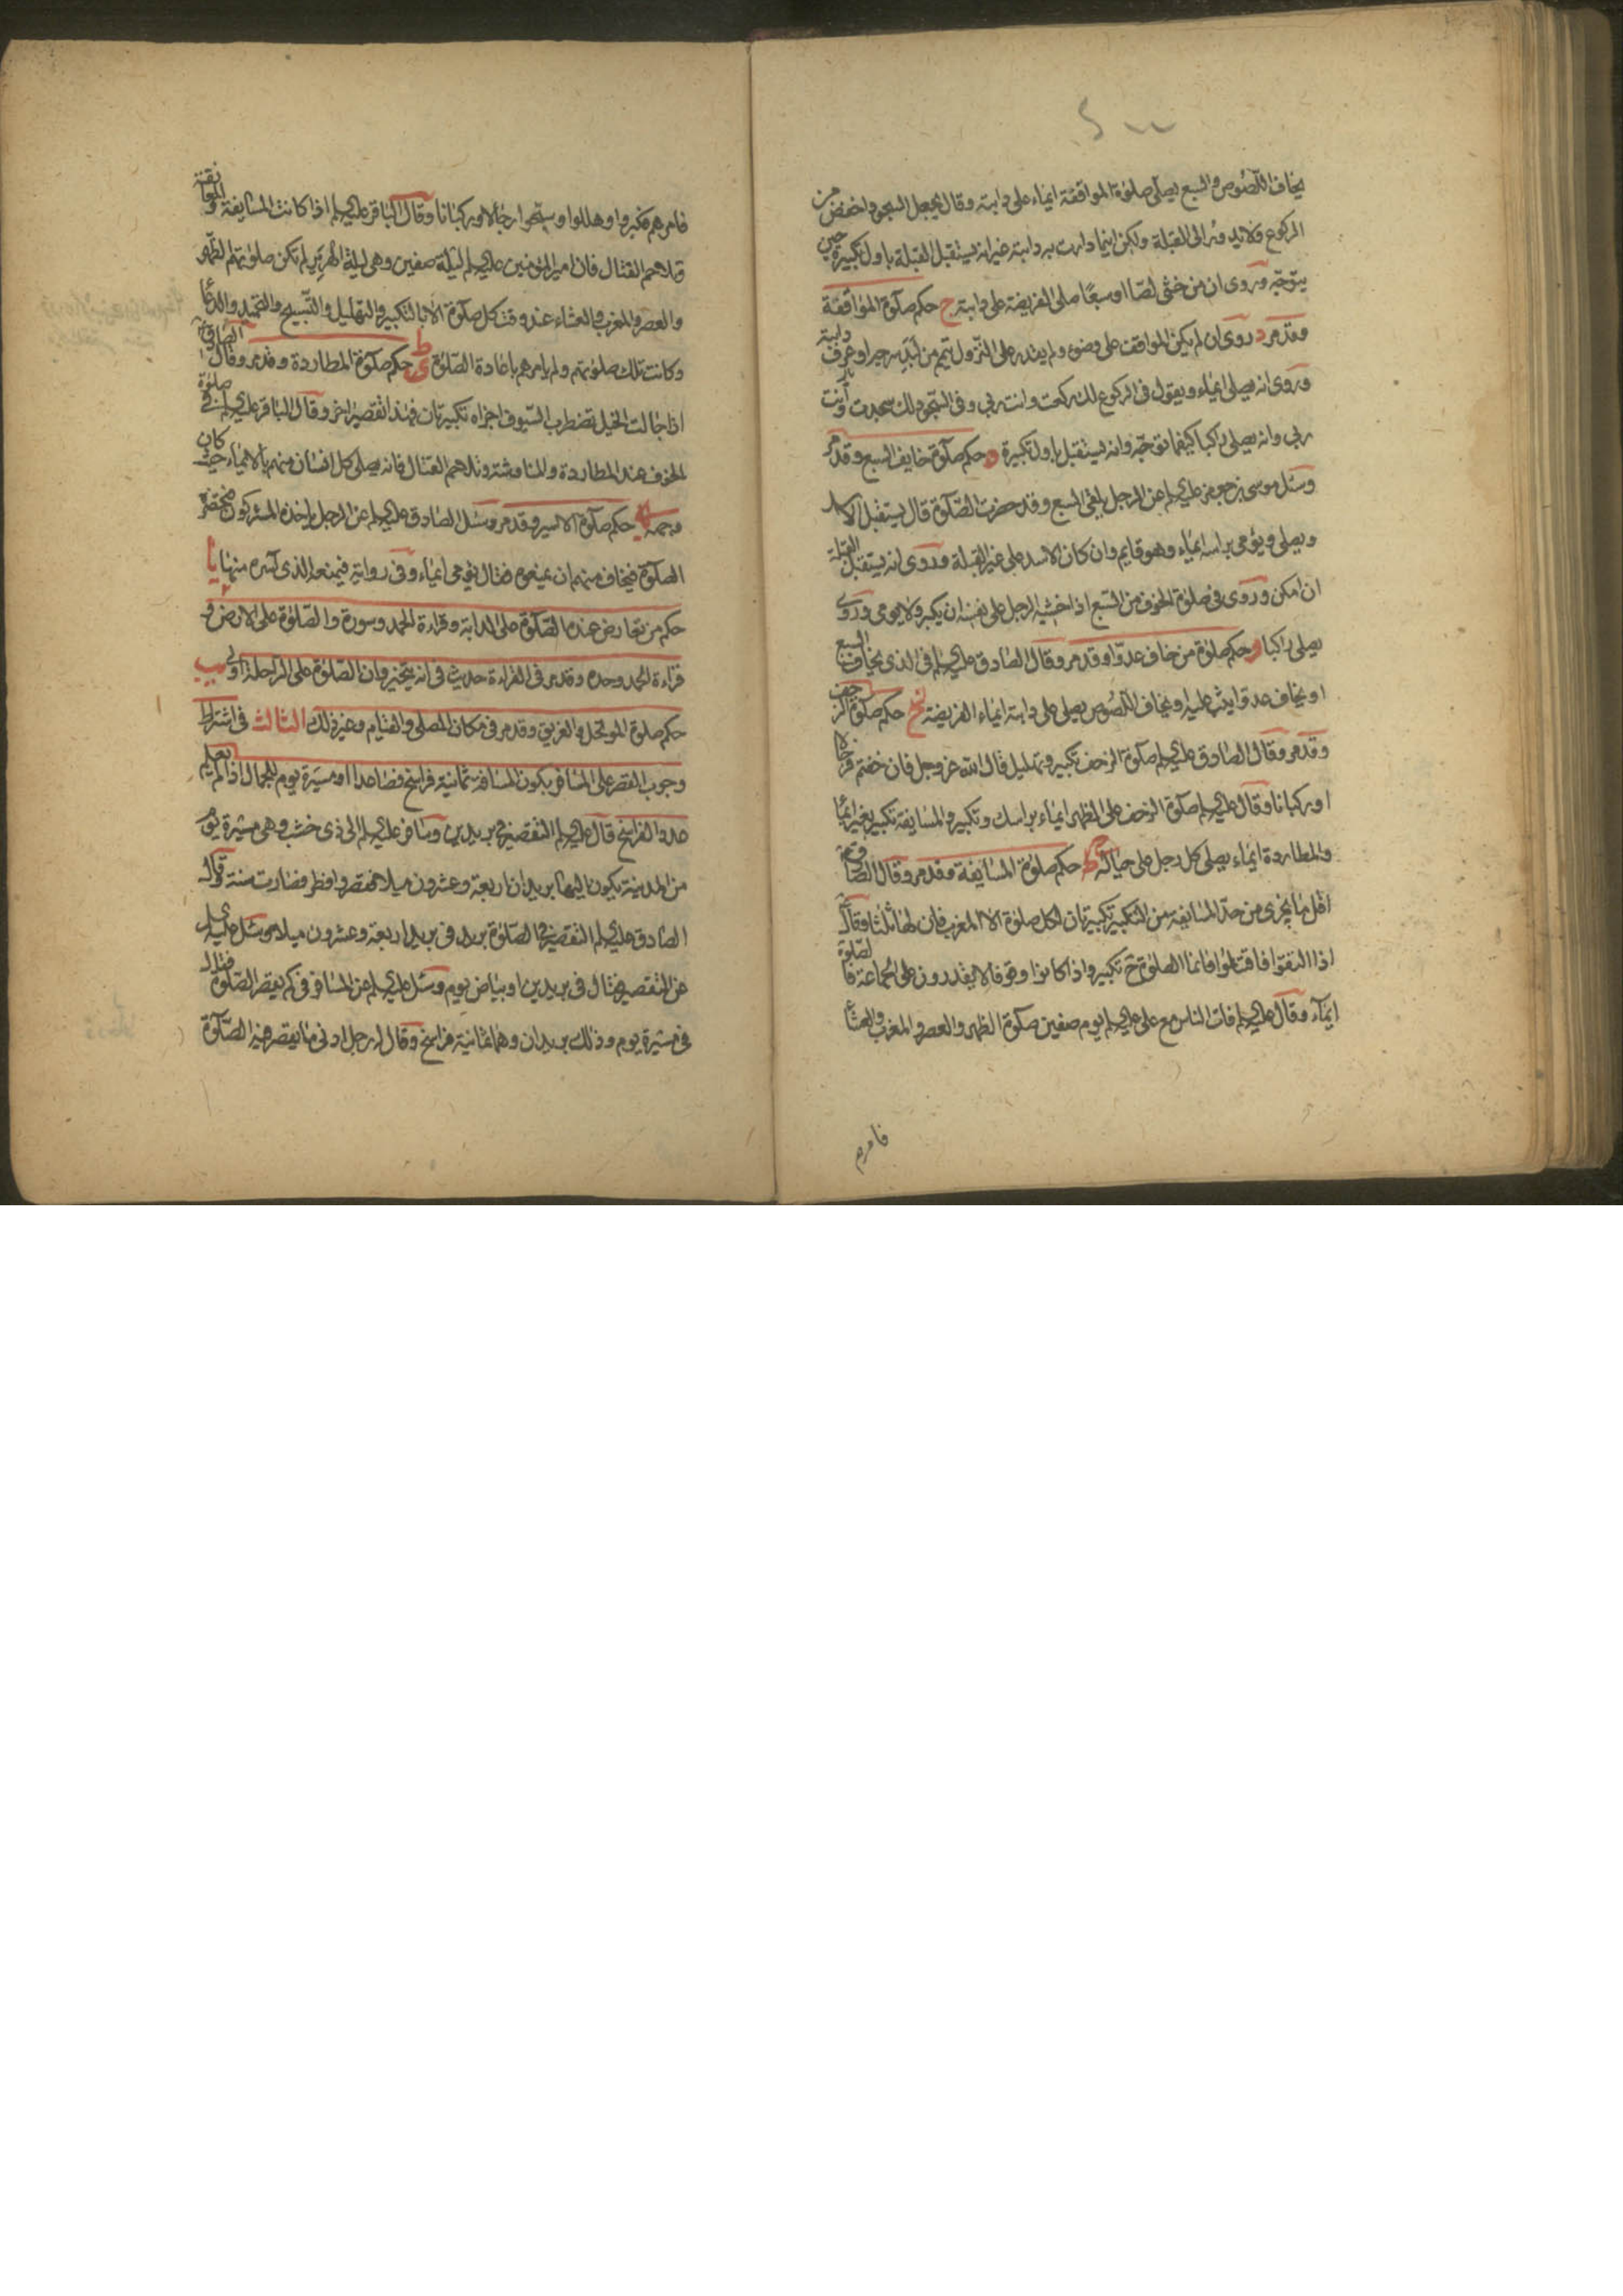 يخاف اللصوص والسبع يصلى صلوة المواقفة ايماء على دابته وقال يجعل السجود اخفض من
الركوع ولا يدور الى القبلة ولكن اينما دارت به دابته غير انه يستقبل القبلة باول تكبيرة حين
يتوجه وروى ان من خشى لصا او سبعا صلى الفريضة على دابته ج حكم صلوة المواقفة
وقد مر د روى ان لم يكن المواقف على وضوء ولم يقدر على النزول تيمم من لبد سرجه او عرف دابته
وروى انه يصلى ايماء ويقول فى الركوع لك ركعت وانت ربى وفى السجود لك سجدت وانت
ربى وانه يصلى راكبا كيفما توجه وانه يستقبل باول تكبيرة ه حكم صلوة خايف السبع وقد مر
وسئل موسى بن جعفر عليه السلم عن الرجل يلقى السبع وقد حضرت الصلوة قال يستقبل الاسد
ويصلى ويؤمى براسه ايماء وهو قايم وان كان الاسد على غير القبلة وروى انه يستقبل القبلة
ان امكن وروى فى صلوة الخوف من السبع اذا خشيه الرجل على نفسه ان يكبر ولا يومى وروى
يصلى راكبا و حكم صلوة من خاف عدوا وقد مر وقال الصادق عليه السلم فى الذى يخاف السبع
او يخاف عدوا يثب عليه او يخاف اللصوص يصلى على دابته ايماء الفريضة ح حكم صلوة الزحف
وقد مر وقال الصادق عليه السلم صلوة الزحف تكبير وتهليل قال الله عز وجل فان خفتم فرجالا
او ركبانا وقال عليه السلم صلوة الزحف على الظهر ايماء براسك وتكبير والمسايفة تكبير بغير ايماء
والمطاردة ايماء يصلى كل رجل على حياله ط حكم صلوة المسايفة وقد مر وقال الصادق ع
اقل ما يجزى من حد المسايفة من التكبير تكبيرتان لكل صلوة الا المغرب فان لها ثلثا وقال
اذا التقوا فاقتتلوا فانما الصلوة ح تكبير واذا كانوا وقوفا لا يقدرون على الجماعة فالصلوة
ايماء وقال عليه السلم فات الناس مع على عليه السلم يوم صفين صلوة الظهر والعصر والمغرب والعشاء
فامرهم
فامرهم فكبروا وهللوا وسبحوا رجالا وركبانا وقال الباقر عليه السلم اذا كانت المسايفة والمعانقة
وتلاحم القتال فان امير المؤمنين عليه السلم ليلة صفين وهى ليلة الهرير لم تكن صلوتهم الظهر
والعصر والمغرب والعشاء عند وقت كل صلوة الا بالتكبير والتهليل والتسبيح والتحميد والدعاء
وكانت تلك صلوتهم ولم يامرهم باعادة الصلوة ى حكم صلوة المطاردة وقد مر وقال الصادق ع
اذا جالت الخيل تضطرب السيوف اجزاه تكبيرتان فهذا تقصير اخر وقال الباقر عليه السلم فى صلوة
الخوف عند المطاردة والمناوشة وتلاحم القتال فانه يصلى كل انسان منهم بالايماء حيث كان
وجهه حكم صلوة الاسير وقد مر وسئل الصادق عليه السلم عن الرجل ياخذه المشركون فتحضره
الصلوة فيخاف منهم ان يمنعوه فقال يؤمى ايماء وفى رواية فيمنعه الذى اسره منها يا
حكم من تعارض عنده الصلوة على الدابة وقراءة الحمد وسورة والصلوة على الارض و
قراءة الحمد وحده وقد مر فى القراءة حديث فى انه يتخير وان الصلوة على الراحلة اولى يب
حكم صلوة الموتحل والغريق وقد مر فى مكان المصلى والقيام وغير ذلك الثالث فى اشتراط
وجوب القصر على المسافر بكون المسافة ثمانية فراسخ فصاعدا او مسيرة يوم للجمال اذا لم يعلم
عدد الفراسخ قال عليه السلم التقصير فى بريدين وسافر عليه السلم الى ذى خشب وهى مسيرة يوم
من المدينة يكون اليها بريدان اربعة وعشرون ميلا فقصر وافطر فصارت سنة وقال
الصادق عليه السلم التقصير فى الصلوة بريد فى بريد اربعة وعشرون ميلا وسئل عليه السلم
عن التقصير فقال فى بريدين او بياض يوم وسئل عليه السلم عن المسافر فى كم يقصر الصلوة فقال
فى مسيرة يوم وذلك بريدان وهما ثمانية فراسخ وقال له رجل ادنى ما يقصر فيه الصلوة